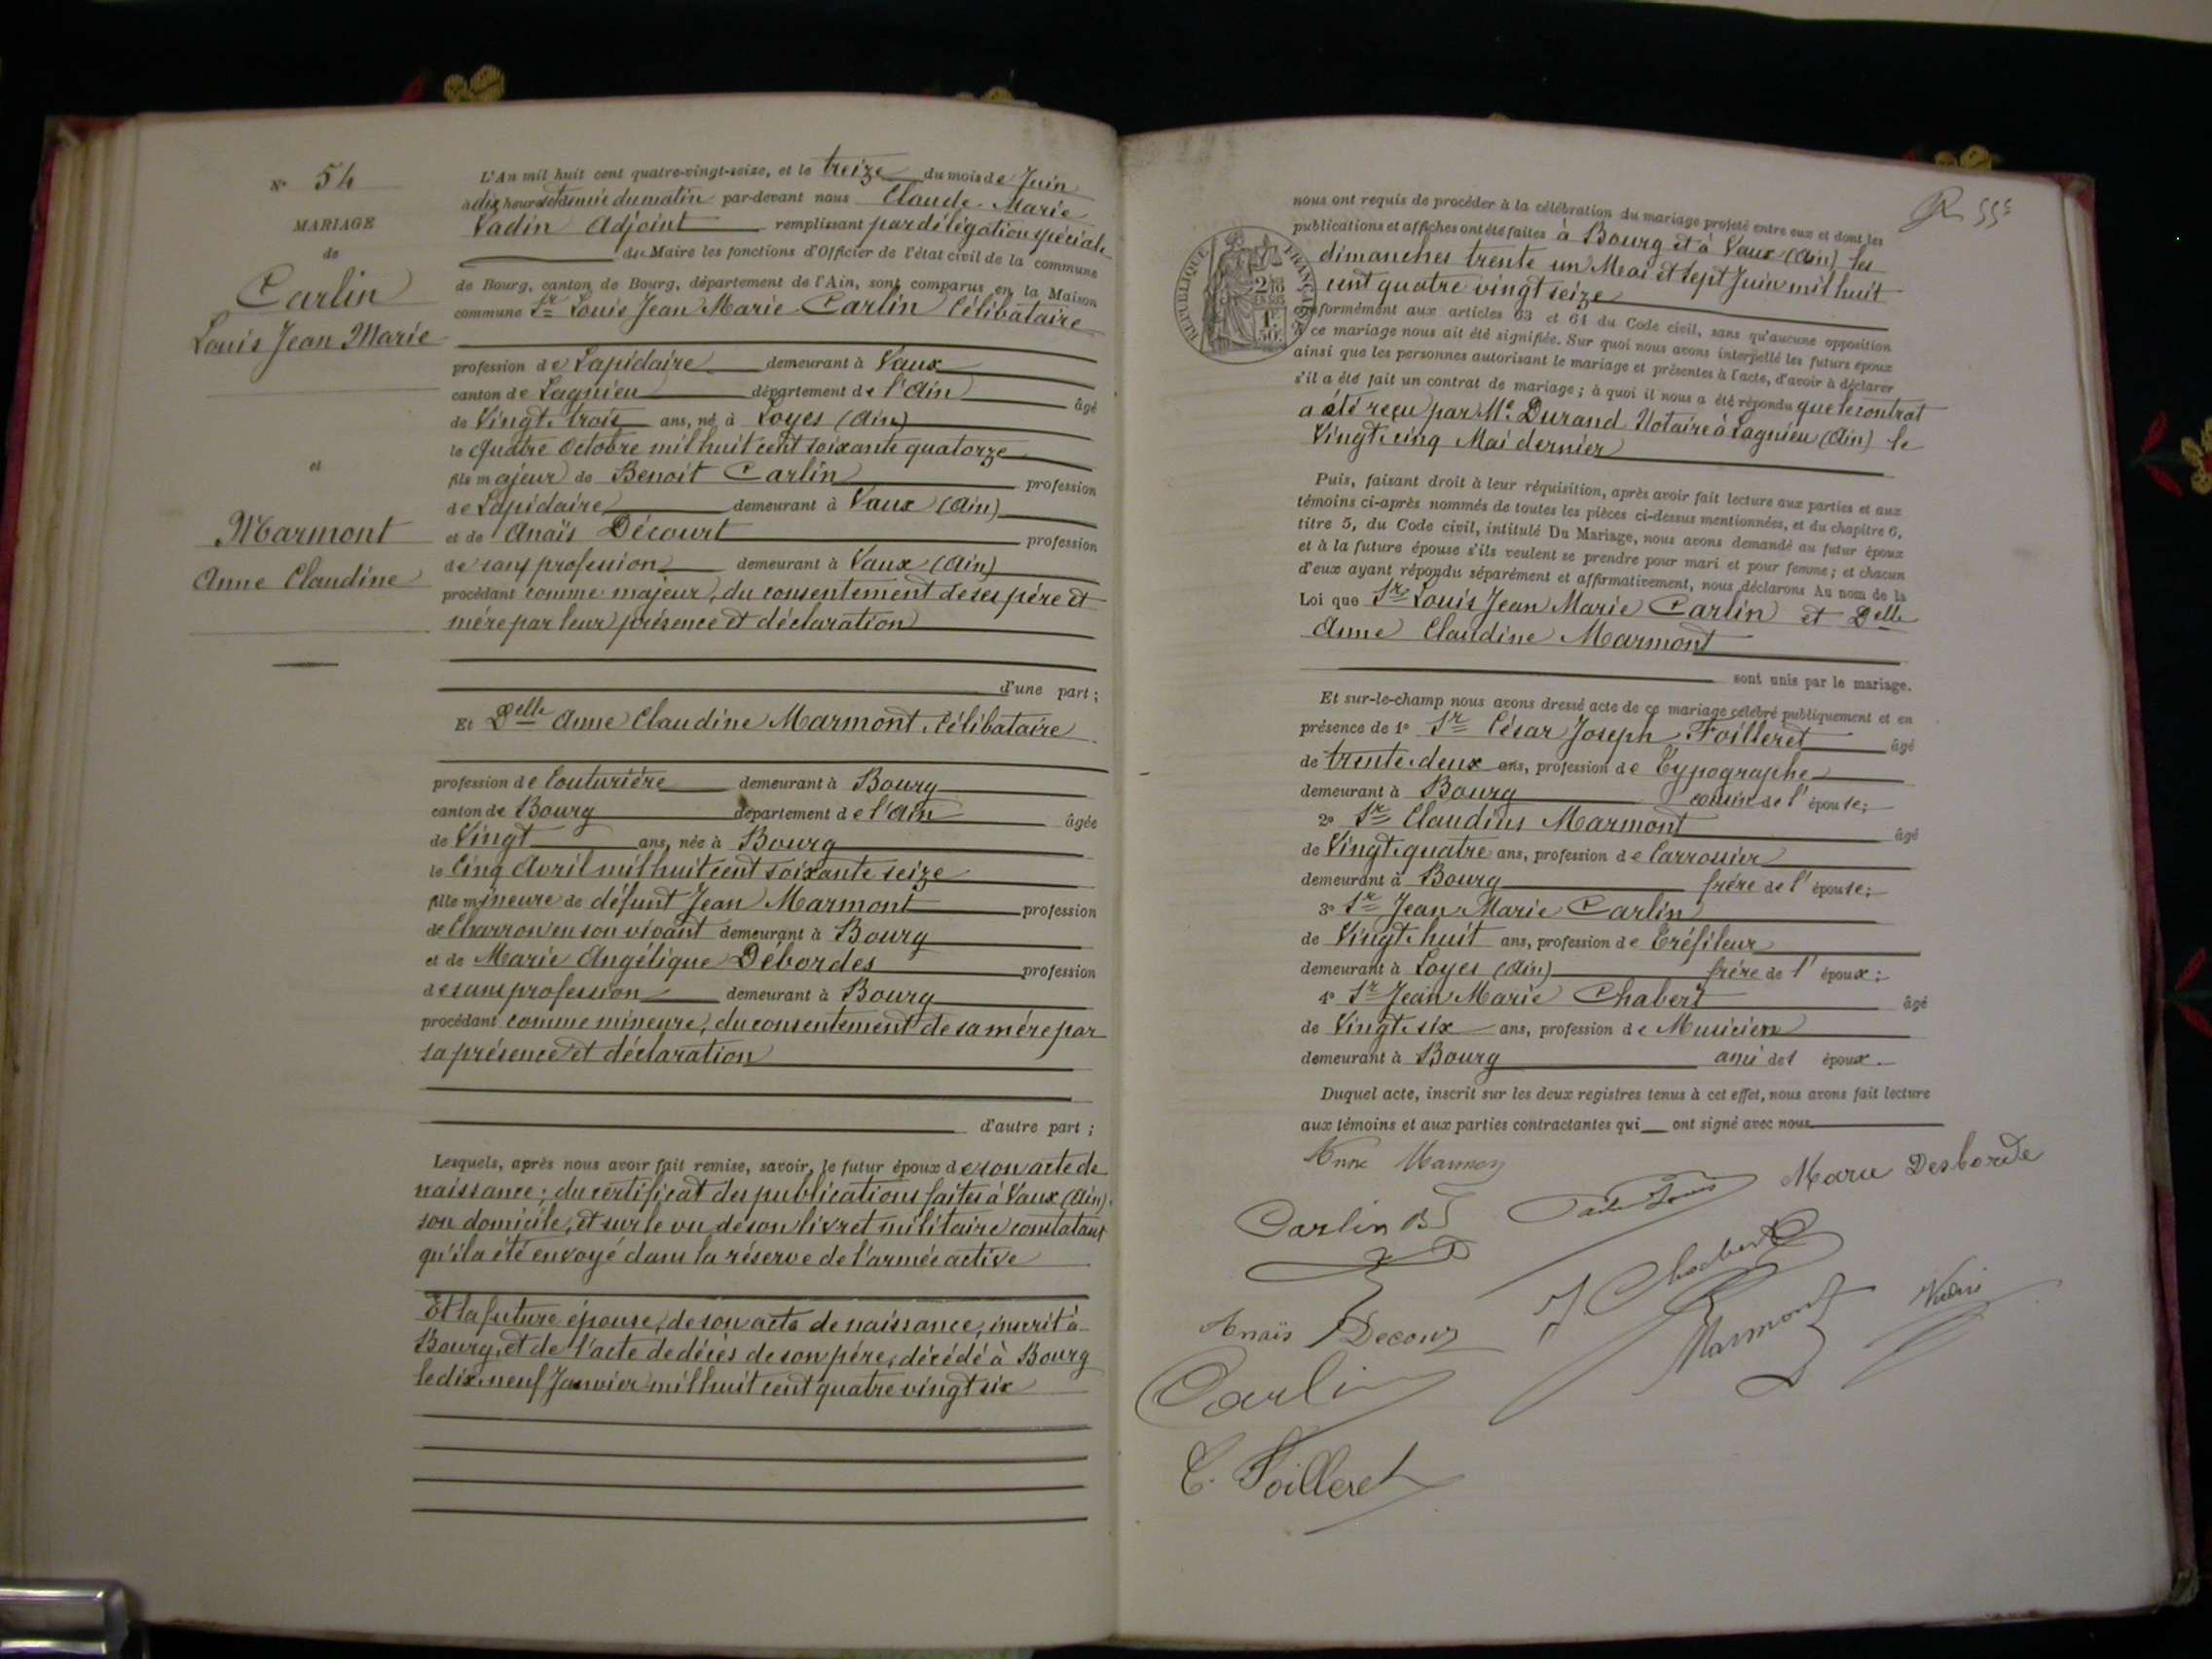 N° 54
MARIAGE
de
Carlin
Louis Jean Marie
et
Marmont
Anne Claudine
L'An mil huit cent quatre-vingt-seize, et le treize du mois de Juin
à dix heures et demie du matin par-devant nous Claude Marie
Vadin Adjoint remplissant par délégation spéciale
de Maire les fonctions d'Officier de l'état civil de la commune
de Bourg, canton de Bourg, département de l'Ain, sont comparus en la Maison
commune Sr Louis Jean Marie Carlin Célibataire
profession de Lapidaire demeurant à Vaux
canton de Lagnieu département de l'Ain âgé
de Vingt-trois ans, né à Loyes (Ain)
le quatre Octobre mil huit cent soixante quatorze
fils majeur de Benoit Carlin profession
de Lapidaire demeurant à Vaux (Ain)
et de Anaïs Décourt profession
de sans profession demeurant à Vaux (Ain)
procédant comme majeur, du consentement de ses père et
mère par leur présence et déclaration
d'une part ;
Et Delle Anne Claudine Marmont, Célibataire
profession de Couturière demeurant à Bourg
canton de Bourg département de l'Ain âgée
de Vingt ans, née à Bourg
le Cinq Avril mil huit cent soixante seize
fille mineure de défunt Jean Marmont profession
de Charron en son vivant demeurant à Bourg
et de Marie Angélique Débordes profession
de sans profession demeurant à Bourg
procédant comme mineure, du consentement de sa mère par
sa présence et déclaration
d'autre part ;
Lesquels, après nous avoir fait remise, savoir, le futur époux de son acte de
naissance ; du certificat des publications faites à Vaux (Ain)
son domicile, et sur le vu de son livret militaire constatant
qu'il a été envoyé dans la réserve de l'armée active
Et la future épouse, de son acte de naissance, inscrit à
Bourg, et de l'acte de décès de son père, décédé à Bourg
le dix-neuf Janvier mil huit cent quatre vingt six
nous ont requis de procéder à la célébration du mariage projeté entre eux et dont les
publications et affiches ont été faites à Bourg et à Vaux (Ain) les
dimanches trente un Mai et sept Juin mil huit
cent quatre vingt seize
conformément aux articles 63 et 64 du Code civil, sans qu'aucune opposition
à ce mariage nous ait été signifiée. Sur quoi nous avons interpellé les futurs époux
ainsi que les personnes autorisant le mariage et présentes à l'acte, d'avoir à déclarer
s'il a été fait un contrat de mariage ; à quoi il nous a été répondu que le contrat
a été reçu par Me Durand Notaire à Lagnieu (Ain) le
Vingt-cinq Mai dernier
RÉPUBLIQUE FRANÇAISE
Puis, faisant droit à leur réquisition, après avoir fait lecture aux parties et aux
témoins ci-après nommés de toutes les pièces ci-dessus mentionnées, et du chapitre 6,
titre 5, du Code civil, intitulé Du Mariage, nous avons demandé au futur époux
et à la future épouse s'ils veulent se prendre pour mari et pour femme ; et chacun
d'eux ayant répondu séparément et affirmativement, nous déclarons Au nom de la
Loi que Sr Louis Jean Marie Carlin et Delle
Anne Claudine Marmont
sont unis par le mariage.
Et sur-le-champ nous avons dressé acte de ce mariage célébré publiquement et en
présence de 1° Sr César Joseph Foilleret âgé
de trente-deux ans, profession de Typographe
demeurant à Bourg cousin de l'épouse ;
2° Sr Claudius Marmont âgé
de Vingt-quatre ans, profession de Carrossier
demeurant à Bourg frère de l'épouse ;
3° Sr Jean Marie Carlin
de Vingt-huit ans, profession de Tréfileur
demeurant à Loyes (Ain) frère de l'époux ;
4° Sr Jean Marie Chabert âgé
de Vingt-six ans, profession de Musicien
demeurant à Bourg ami de l époux.
Duquel acte, inscrit sur les deux registres tenus à cet effet, nous avons fait lecture
aux témoins et aux parties contractantes qui ont signé avec nous
Anne Marmon
Marie Desborde
Carlin
J Chabert
Anaïs Decour
Marmont
Vadin
Carlin
C. Foilleret